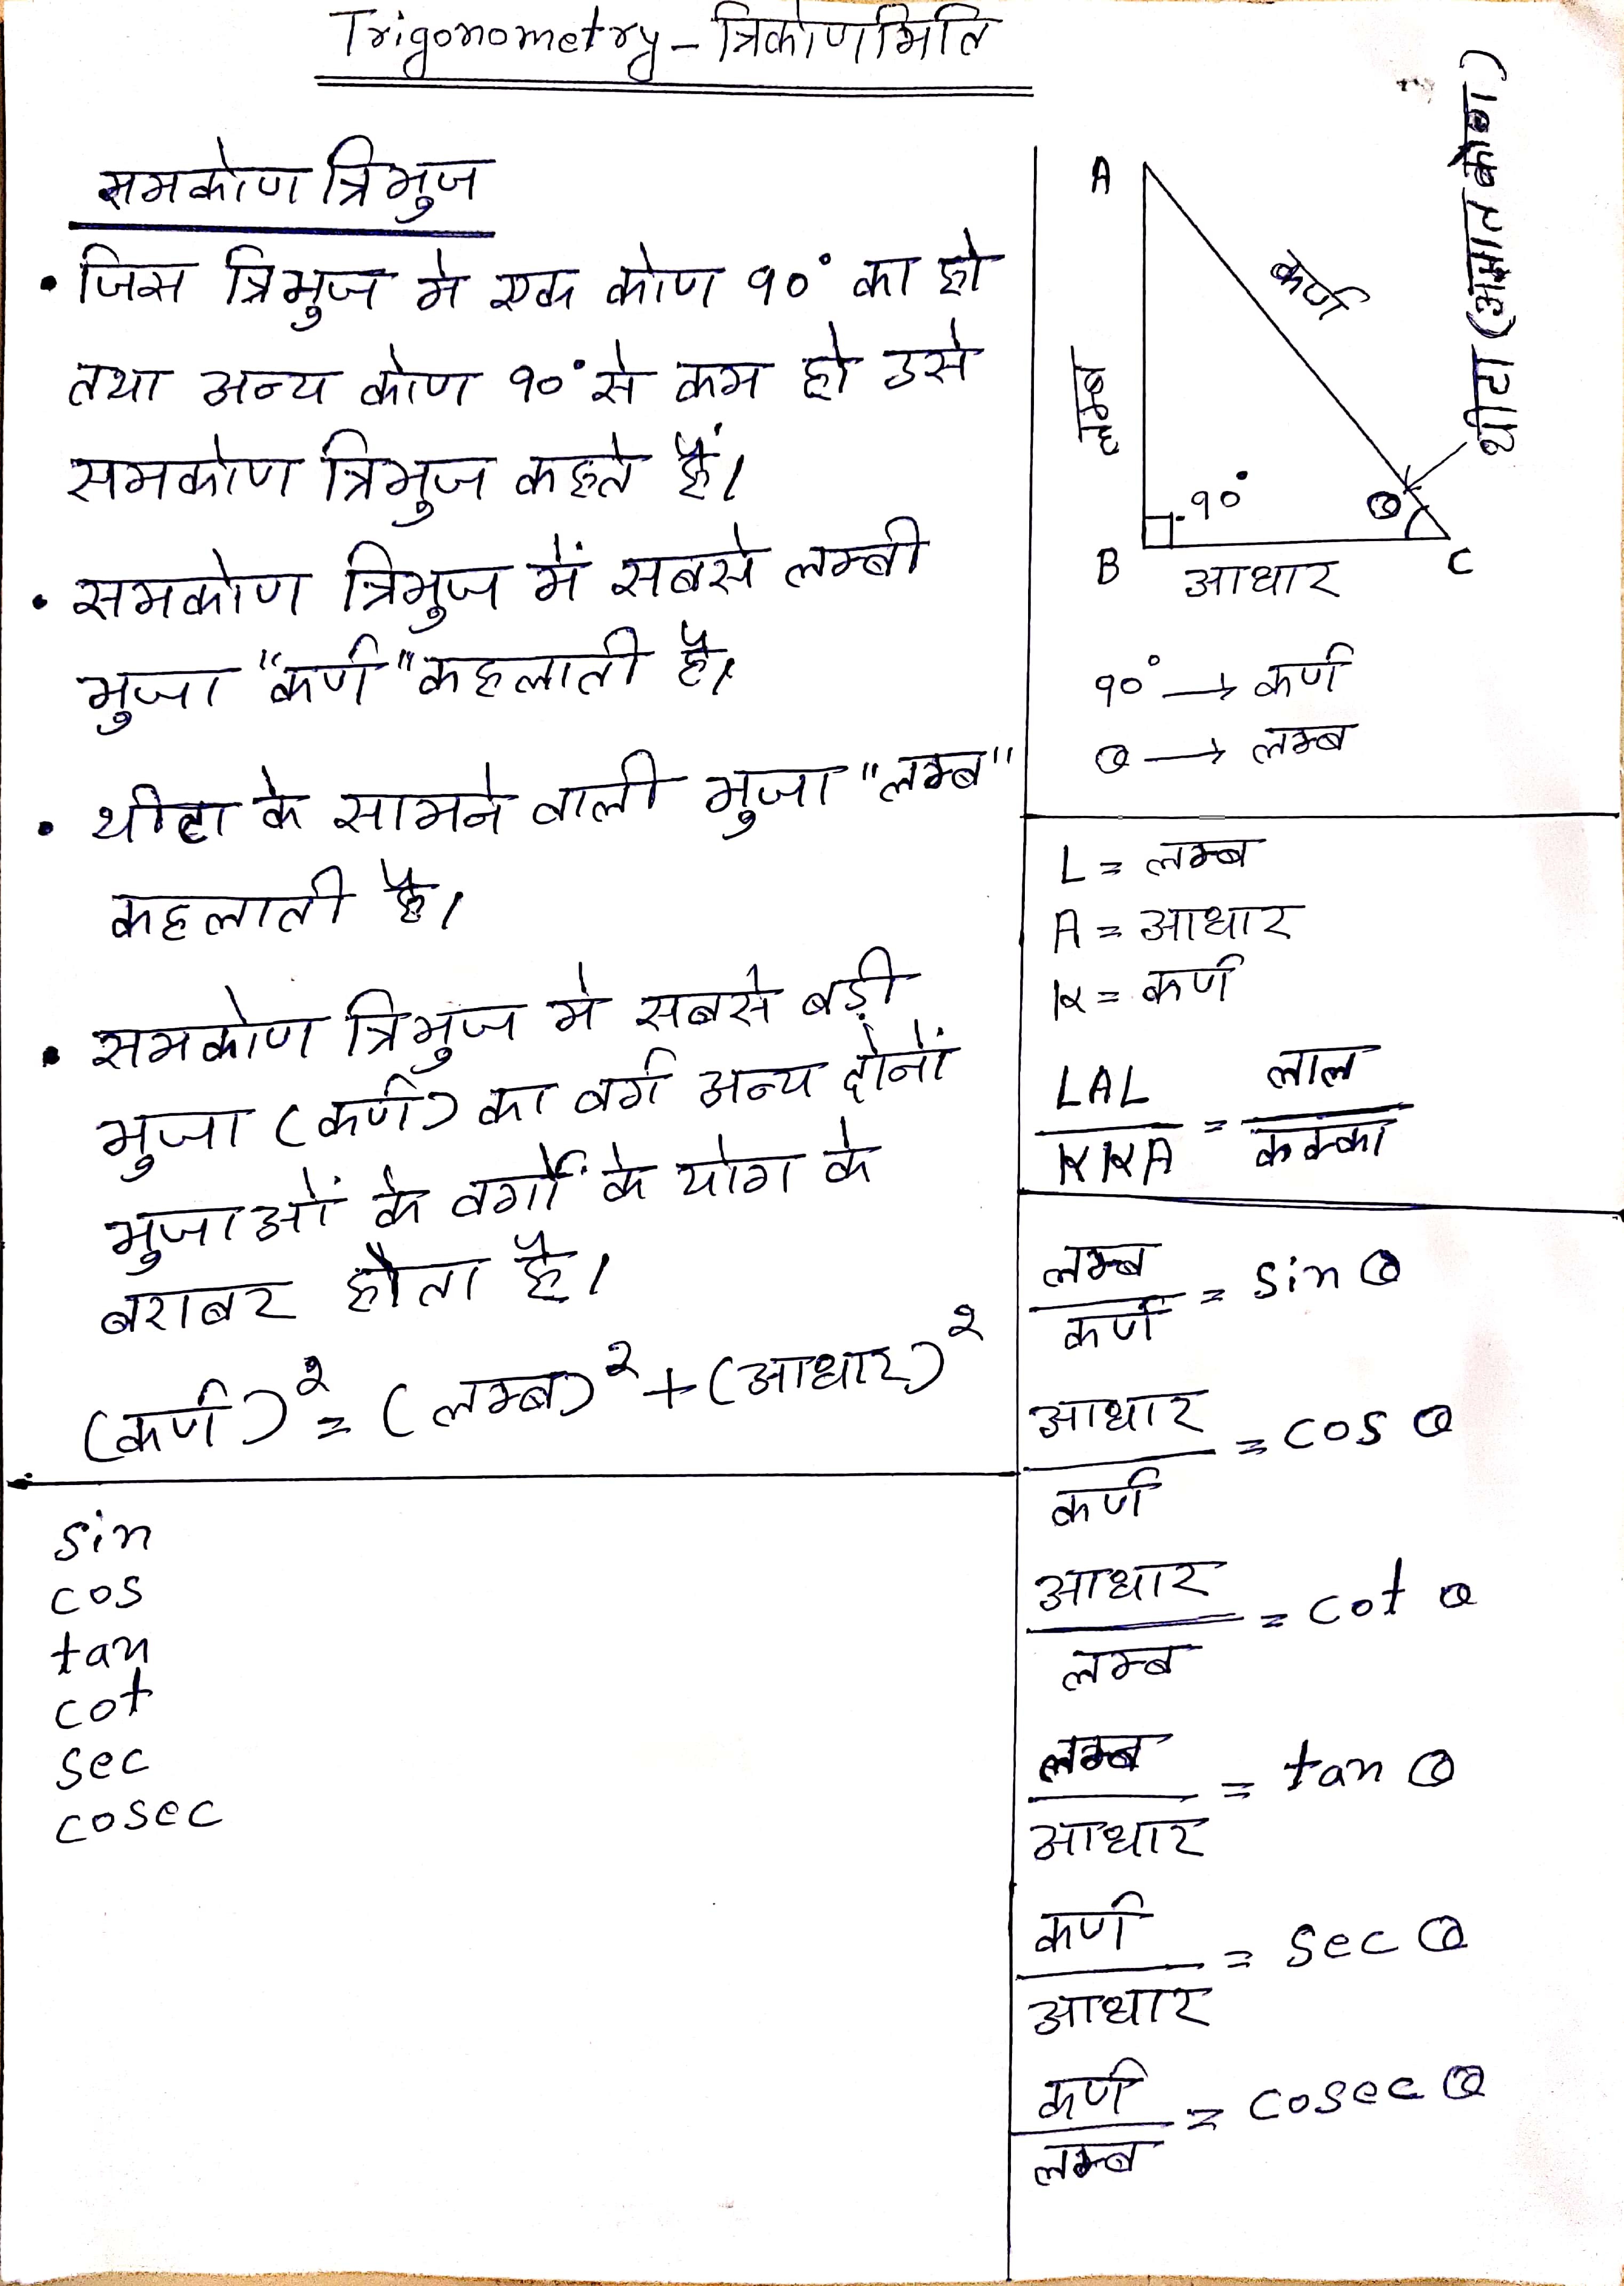 Trigonometry - त्रिकोणमिति
समकोण त्रिभुज
• जिस त्रिभुज मे एक कोण 90° का हो
तथा अन्य कोण 90° से कम हो उसे
समकोण त्रिभुज कहते हैं।
• समकोण त्रिभुज में सबसे लम्बी
भुजा "कर्ण" कहलाती है।
• थीटा के सामने वाली भुजा "लम्ब"
कहलाती है।
• समकोण त्रिभुज मे सबसे बड़ी
भुजा (कर्ण) का वर्ग अन्य दोनों
भुजाओं के वर्गों के योग के
बराबर होता है।
(कर्ण)² = (लम्ब)² + (आधार)²
sin
cos
tan
cot
sec
cosec
A
कर्ण
लम्ब
थीटा (अज्ञात कोण)
90°
θ
B
आधार
C
90° → कर्ण
θ → लम्ब
L = लम्ब
A = आधार
K = कर्ण
LAL/KKA = लाल/कक्का
लम्ब/कर्ण = sin θ
आधार/कर्ण = cos θ
आधार/लम्ब = cot θ
लम्ब/आधार = tan θ
कर्ण/आधार = sec θ
कर्ण/लम्ब = cosec θ